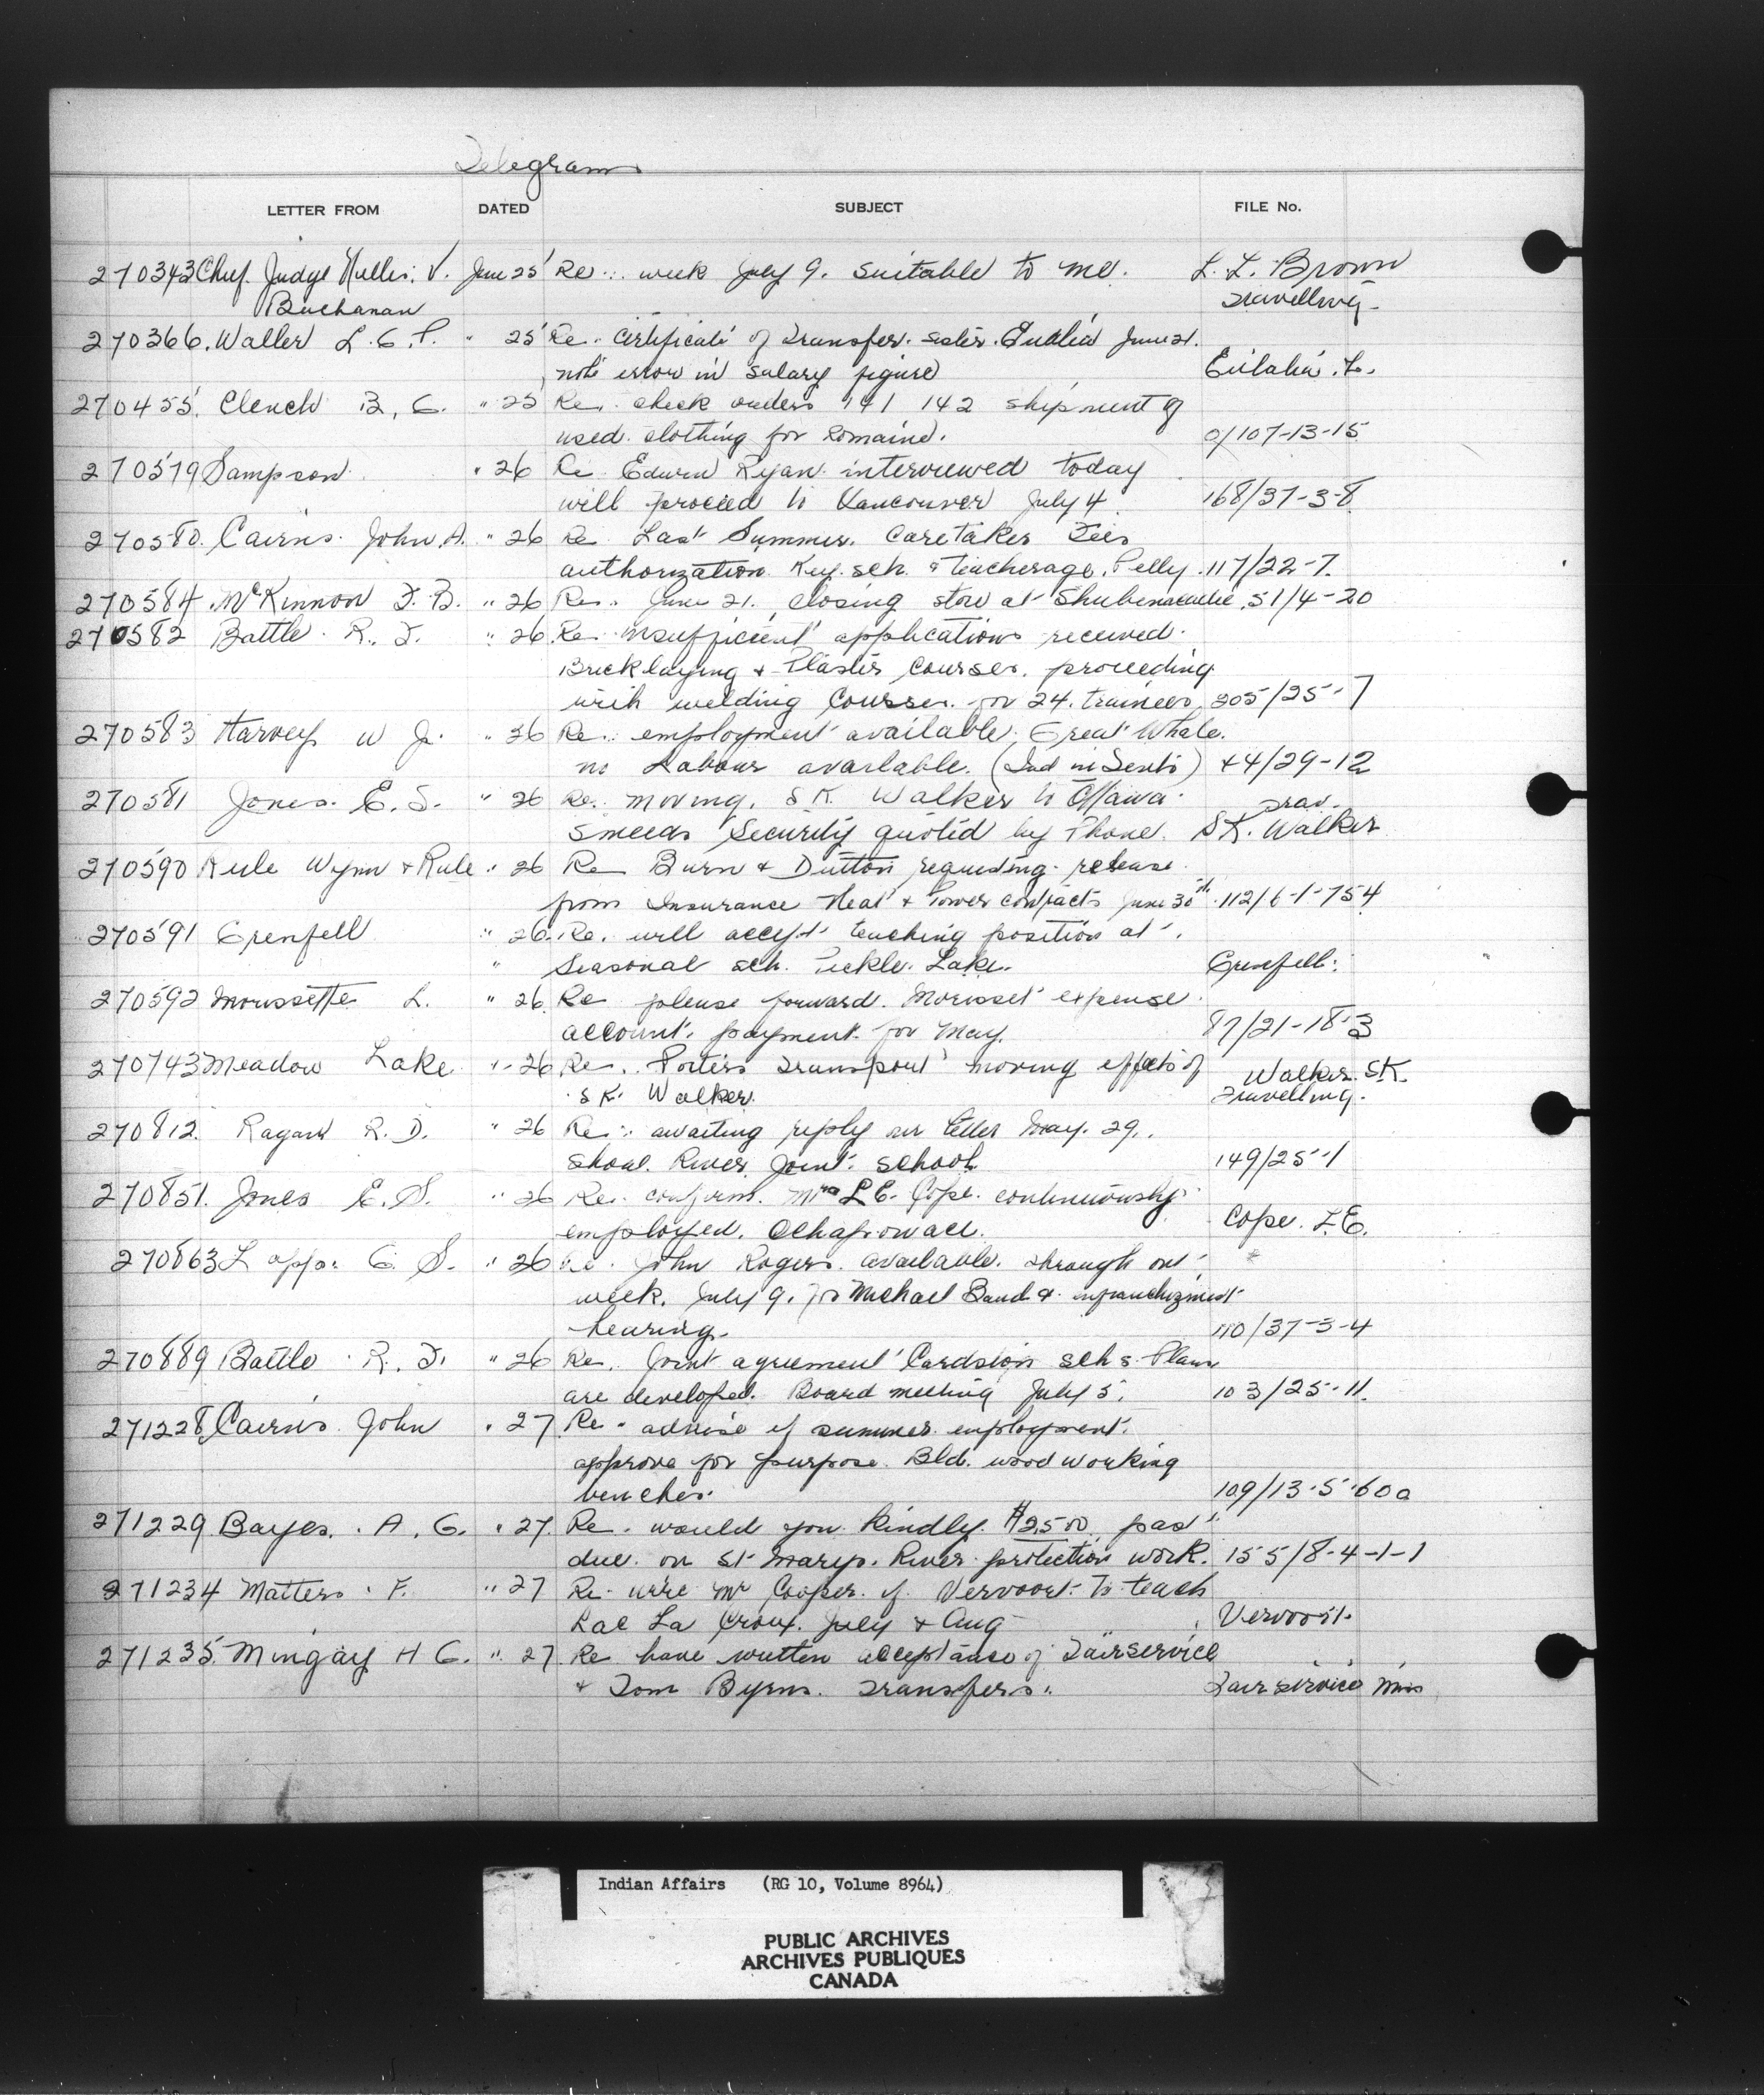 Telegrams
LETTER FROM DATED SUBJECT FILE No.
270343 Chief Judge V. June 25 Re. week July 9. suitable to me. L. L. Brown
Buchanan Travelling
270366. Waller L. G. P. " 25 Re. Certificate of Transfer. Sister June 21.
note error in salary figure Eulalia
270455. Clench B. C. " 25 Re. check orders 141 142 shipment of
used clothing for Romaine. 0/107-13-15
270579 Sampson " 26 Re Edwin Ryan interviewed today
will proceed to Vancouver July 4. 168/37-3-8
270580. Cairns. John. A. " 26 Re Last Summer. Caretaker Fees
authorization. Key. sch. & Teacherage. Pelly. 117/22-7.
270584. McKinnon F. B. " 26 Re. June 21. closing store at Shubenacadie. 51/4-20
270582 Battle. R. F. " 26. Re insufficient applications received.
Bricklaying & Plaster Courses. proceeding
with welding Courses. for 24. trainees 205/25-7
270583 Harvey W J. " 26 Re. employment available. Great Whale.
no Labour available. 44/29-12
270581 Jones. E. S. " 26 Re. moving. S K. Walker to Ottawa. Trav.
Smeeds Security quoted by Phone. SK. Walker
270590 Rule Wynn & Rule. " 26 Re Burn & Dutton requesting release
from Insurance Heat & Power contracts June 30th. 112/6-1-754
270591 Grenfell " 26. Re. will accept teaching position at
" Seasonal sch. Pickle. Lake. Grenfell.
270592 Morissette L. " 26. Re please forward. Morisset expense
account. payment for May. 87/21-18-3
270743 Meadow Lake " 26 Re. Porters Transport moving effects of Walker. SK.
S K. Walker. Travelling.
270812. Ragan R. D. " 26 Re. awaiting reply our letter May. 29.
Shoal. River Joint. School 149/25-1
270851. Jones E. S. " 26 Re. confirm. Mrs L E. Cope. continuously
employed. Ochapowace. Cope. L E.
270863 Lapp. C. S. " 26 Re. John Rogers. available. through out
week. July 9. for Michael Band & enfranchizment
hearing. 110/37-3-4
270889 Battle. R. F. " 26 Re. Joint agreement Cardston schs. Plans
are developed. Board meeting July 5. 103/25-11.
271228. Cairns John " 27 Re. advise if summer employment.
approve for purpose. Bld. wood working
benches. 109/13-5-60a
271229 Bayes. A. G. " 27. Re. would you kindly. $2500 past
due. on St Marys. River protection work. 155/8-4-1-1
271234 Matters. F. " 27 Re. wire Mr Cooper. if Vervoort. To teach
Lac La Croix. July & Aug Vervoort.
271235. Mingay H G. " 27 Re have written acceptance of Fairservice
& Tom Byrns. Transfers. Fairservice Miss
Indian Affairs (RG 10, Volume 8964)
PUBLIC ARCHIVES
ARCHIVES PUBLIQUES
CANADA